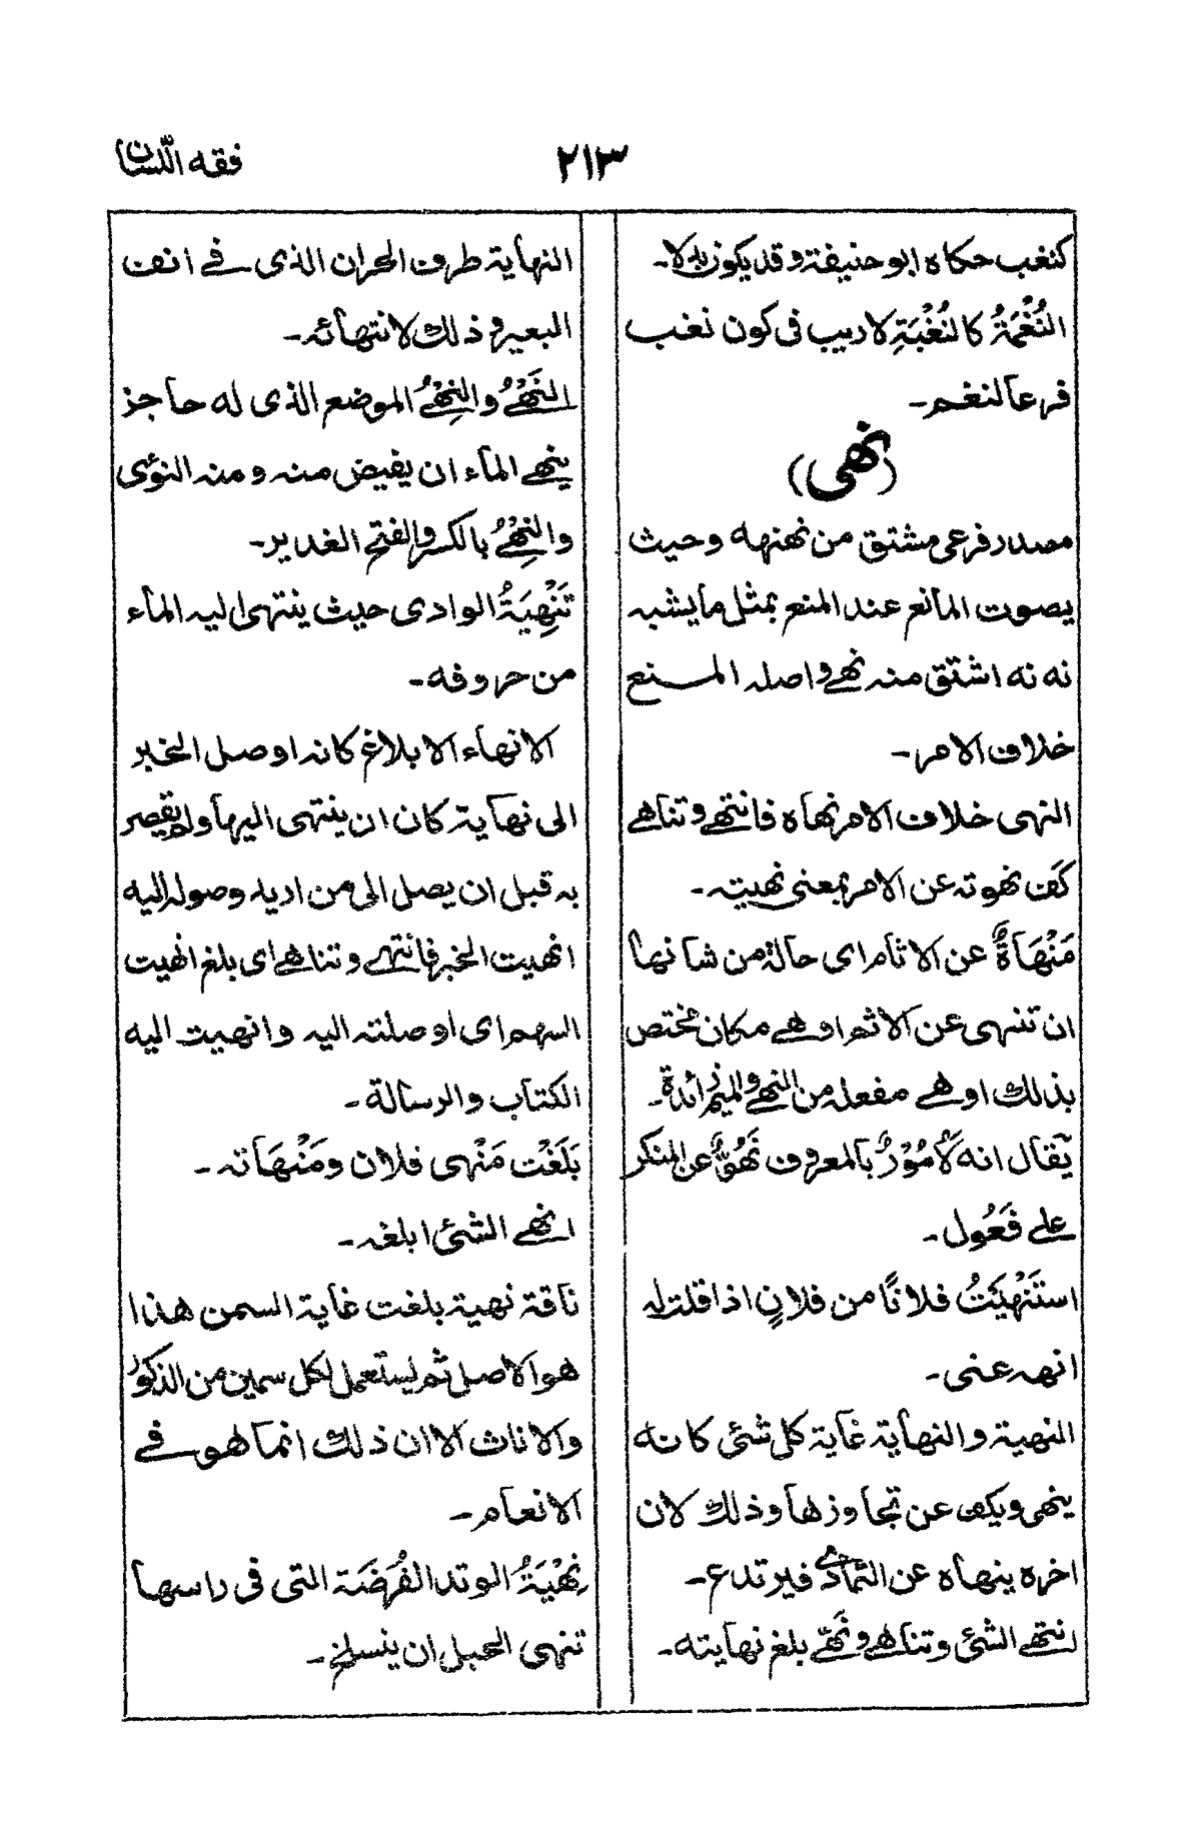 فقه اللسان
٢١٣
كنغب حكاه ابو حنيفة وقد يكون بدلا۔
النُغْمَةُ كالنُغْبَةِ لا ريب فى كون نغب
فرعا لنغم۔
(نهى)
مصدر فرعى مشتق من نهنهه وحيث
يصوت المانع عند المنع بمثل ما يشبه
نه نه اشتق منه نهى واصله المنع
خلاف الامر۔
النهى خلاف الامر نهاه فانتهى وتناهى
كف نهوته عن الامر بمعنى نهيته۔
مَنْهَاةٌ عن الاثام اى حالة من شانها
ان تنهى عن الاثم او هى مكان مختص
بذلك او هى مفعلة من النهى والميم زائدة۔
يقال انه لَأَمُوْرٌ بالمعروف نَهُوٌّ عن المنكر
على فَعُول۔
استَنْهَيْتُ فلانًا من فلانٍ اذا قلت له
انهه عنى۔
النهية والنهاية غاية كل شئ كانه
ينهى ويكف عن تجاوزها وذلك لان
اخره ينهاه عن التمادى فيرتدع۔
انتهى الشئ وتناهى ونَهّى بلغ نهايته۔
النهاية طرف الحران الذى فى انف
البعير وذلك لانتهائه۔
النَهْىُ والنِهْىُ الموضع الذى له حاجز
ينهى الماء ان يفيض منه ومنه النؤى
والنِهْىُ بالكسر والفتح الغدير۔
تَنْهِيَةُ الوادى حيث ينتهى اليه الماء
من حروفه۔
الانهاء الابلاغ كانه اوصل الخبر
الى نهاية كان ان ينتهى اليها ولم يقصر
به قبل ان يصل الى من اريد وصوله اليه
انهيت الخبر فانتهى وتناهى اى بلغ انهيت
السهم اى اوصلته اليه وانهيت اليه
الكتاب والرسالة۔
بَلَغْت مَنْهى فلان ومَنْهَاته۔
انهى الشئ ابلغه۔
ناقة نهية بلغت غاية السمن هذا
هو الاصل ثم يستعمل لكل سمين من الذكور
والاناث الا ان ذلك انما هو فى
الانعام۔
نِهْيَةُ الوتد الفُرضَة التى فى راسها
تنهى الحبل ان ينسلخ۔